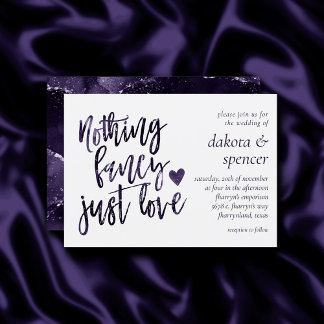 Nothing
fancy
just love
please join us for
the wedding of
dakota &
spencer
saturday, 20th of november
at four in the afternoon
fharryn's emporium
5678 c. fharryn's way
fharrynland, texas
reception to follow